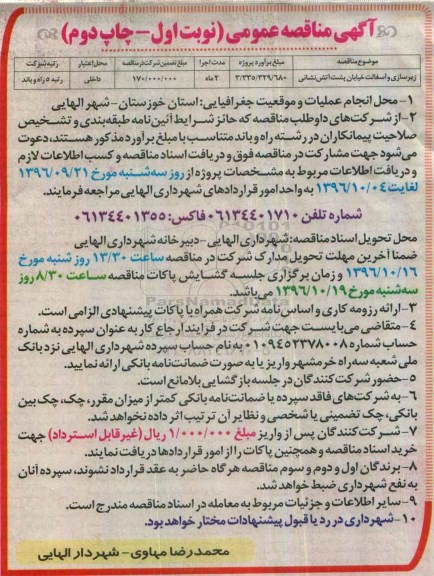 آگهی مناقصه عمومی (نوبت اول - چاپ دوم)
موضوع مناقصه | مبلغ برآورد پروژه | مدت اجرا | مبلغ تضمین شرکت در مناقصه | محل اعتبار | رتبه شرکت
زیرسازی و آسفالت خیابان پشت آتش نشانی | ۳/۳۳۵/۳۲۹/۶۸۰ | ۲ ماه | ۱۷۰/۰۰۰/۰۰۰ | داخلی | رتبه ۵ راه و باند
۱- محل انجام عملیات و موقعیت جغرافیایی: استان خوزستان - شهر الهایی
۲- از شرکت‌های داوطلب مناقصه که حائز شرایط آئین‌نامه طبقه‌بندی و تشخیص
صلاحیت پیمانکاران در رشته راه و باند متناسب با مبلغ برآورد مذکور هستند، دعوت
می‌شود جهت مشارکت در مناقصه فوق و دریافت اسناد مناقصه و کسب اطلاعات لازم
و دریافت اطلاعات مربوط به مشخصات پروژه از روز سه‌شنبه مورخ ۱۳۹۶/۰۹/۲۱
لغایت ۱۳۹۶/۱۰/۰۴ به واحد امور قراردادهای شهرداری الهایی مراجعه فرمایند.
شماره تلفن ۰۶۱۳۴۴۰۱۷۱۰ فاکس: ۰۶۱۳۴۴۰۱۳۵۵
محل تحویل اسناد مناقصه: شهرداری الهایی - دبیرخانه شهرداری الهایی
ضمنا آخرین مهلت تحویل مدارک شرکت در مناقصه ساعت ۱۳/۳۰ روز شنبه مورخ
۱۳۹۶/۱۰/۱۶ و زمان برگزاری جلسه گشایش پاکات مناقصه ساعت ۸/۳۰ روز
سه‌شنبه مورخ ۱۳۹۶/۱۰/۱۹ می‌باشد.
۳- ارائه رزومه کاری و اساس‌نامه شرکت همراه با پاکات پیشنهادی الزامی است.
۴- متقاضی می‌بایست جهت شرکت در فرایند ارجاع کار به عنوان سپرده به شماره
حساب شماره ۰۱۰۹۴۵۲۳۷۸۰۰۸ به نام حساب سپرده شهرداری الهایی نزد بانک
ملی شعبه سه راه خرمشهر واریز یا به صورت ضمانت‌نامه بانکی ارائه نمایید.
۵- حضور شرکت کنندگان در جلسه بازگشایی بلامانع است.
۶- به شرکت‌های فاقد سپرده یا ضمانت‌نامه بانکی کمتر از میزان مقرر، چک، چک بین
بانکی، چک تضمینی یا شخصی و نظایر آن ترتیب اثر داده نخواهد شد.
۷- شرکت‌کنندگان پس از واریز مبلغ ۱/۰۰۰/۰۰۰ ریال (غیرقابل استرداد) جهت
خرید اسناد مناقصه و همچنین پاکات را از امور قراردادها دریافت نمایند.
۸- برندگان اول و دوم و سوم مناقصه هرگاه حاضر به عقد قرارداد نشوند، سپرده آنان
به نفع شهرداری ضبط خواهد شد.
۹- سایر اطلاعات و جزئیات مربوط به معامله در اسناد مناقصه مندرج است.
۱۰- شهرداری در رد یا قبول پیشنهادات مختار خواهد بود.
محمدرضا مهاوی - شهردار الهایی